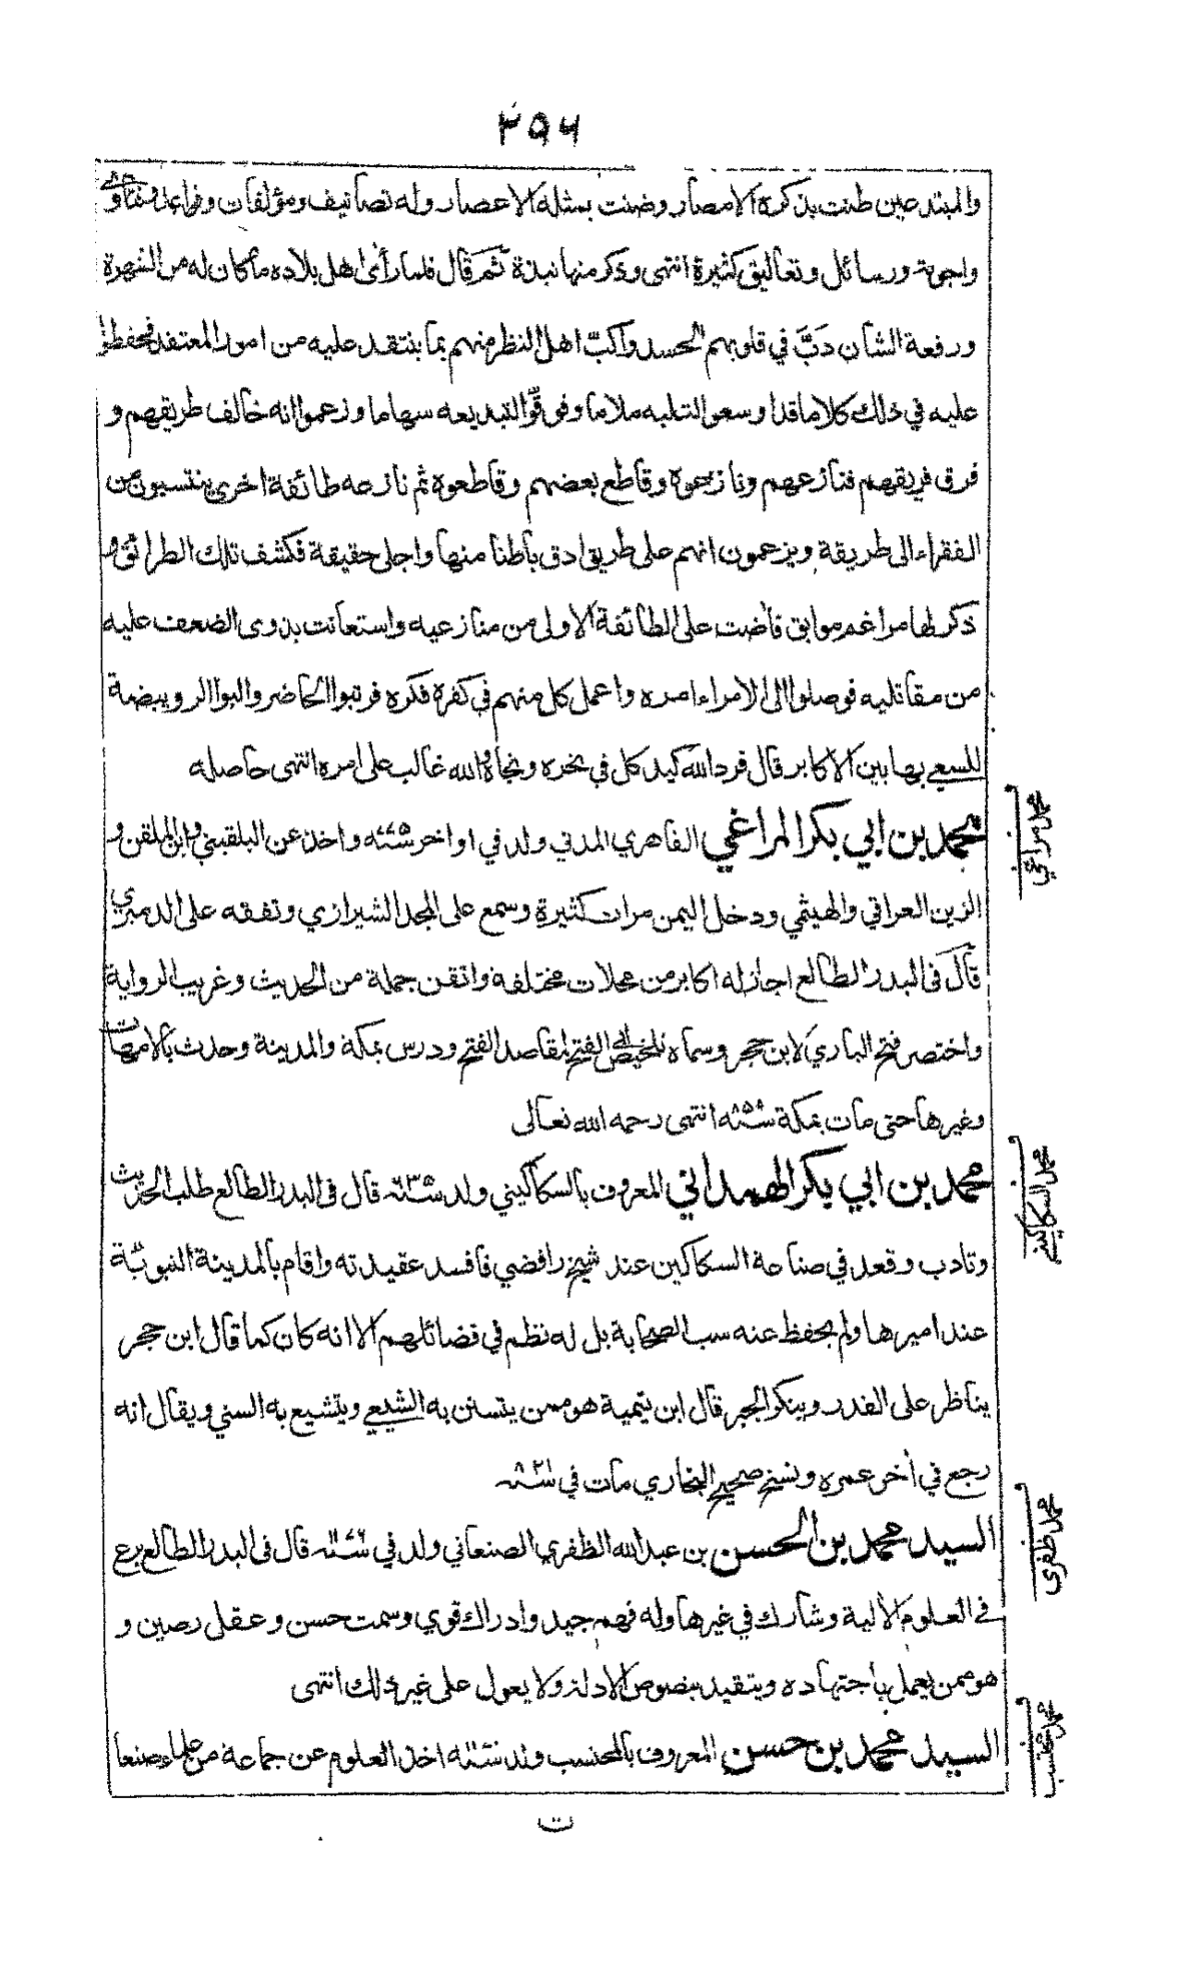 ۳۵۶
والمبتدعين طنت بذكره الامصار وضنت بمثله الاعصار وله تصانيف ومؤلفات وقواعد وفتاوى
واجوبة ورسائل وتعاليق كثيرة انتهى وذكر منها نبذة ثم قال فلما رأى اهل بلاده ما كان له من الشهرة
ورفعة الشان دَبَّ في قلوبهم الحسد واكبّ اهل النظر منهم بما ينتقد عليه من امور المعتقد فحفظوا
عليه في ذلك كلاما قدا وسعوا لثلبه ملاما وفوقوا لتبديعه سهاما وزعموا انه خالف طريقهم و
فرق فريقهم فنازعهم ونازعوه وقاطع بعضهم وقاطعوه ثم نازعه طائفة اخرى ينتسبون من
الفقراء الى طريقة ويزعمون انهم على طريق ادق باطنا منها واجلى حقيقة فكشف تلك الطرائق و
ذكر لها مراغم موابق فاضت على الطائفة الاولى من منازعيه واستعانت بذوى الضعف عليه
من مقاتليه فوصلوا الى الامراء امره واعمل كل منهم في كفره فكره فرتبوا الحاضر والبوا الرويبضة
للسعي بها بين الاكابر قال فرد الله كيد كل في نحره ونجاه والله غالب على امره انتهى حاصله
محمد بن ابي بكر المراغي القاهري المدني ولد في اواخر سنة ٧٧٥ واخذ عن البلقيني وابن الملقن و
الزين العراقي والهيثمي ودخل اليمن مرات كثيرة وسمع على المجد الشيرازي وتفقه على الدميري
قال فى البدر الطالع اجاز له اكابر من محلات مختلفة واتقن جملة من الحديث وغريب الرواية
واختصر فتح الباري لابن حجر وسماه تلخيص ابي الفتح لمقاصد الفتح ودرس بمكة والمدينة وحدث بالامهات
وغيرها حتى مات بمكة سنة ٨٥٩ انتهى رحمه الله تعالى
محمد بن ابي بكر الهمداني المعروف بالسكاكيني ولد سنة ٦٣٥ قال فى البدر الطالع طلب الحديث
وتادب وقعد في صناعة السكاكين عند شيخ رافضي فافسد عقيدته واقام بالمدينة النبويّة
عند اميرها ولم يحفظ عنه سب الصحابة بل له نظم في فضائلهم الا انه كان كما قال ابن حجر
يناظر على القدر وينكر الجبر قال ابن تيمية هو ممن يتسنن به الشيعي ويتشيع به السني ويقال انه
رجع في اخر عمره ونسخ صحيح البخاري مات في سنة
السيد محمد بن الحسن بن عبدالله الظفري الصنعاني ولد في سنة قال فى البدر الطالع برع
فى العلوم الالية وشارك في غيرها وله فهم جيد وادراك قوي وسمت حسن وعقل رصين و
هو ممن يعمل باجتهاده ويتقيد بنصوص الادلة ولا يعول على غير ذلك انتهى
السيد محمد بن حسن المعروف بالمحتسب ولد سنة اخذ العلوم عن جماعة من علماء صنعا
ت
محمد مراغي
محمد السكاكيني
محمد ظفرى
محمد محتسب